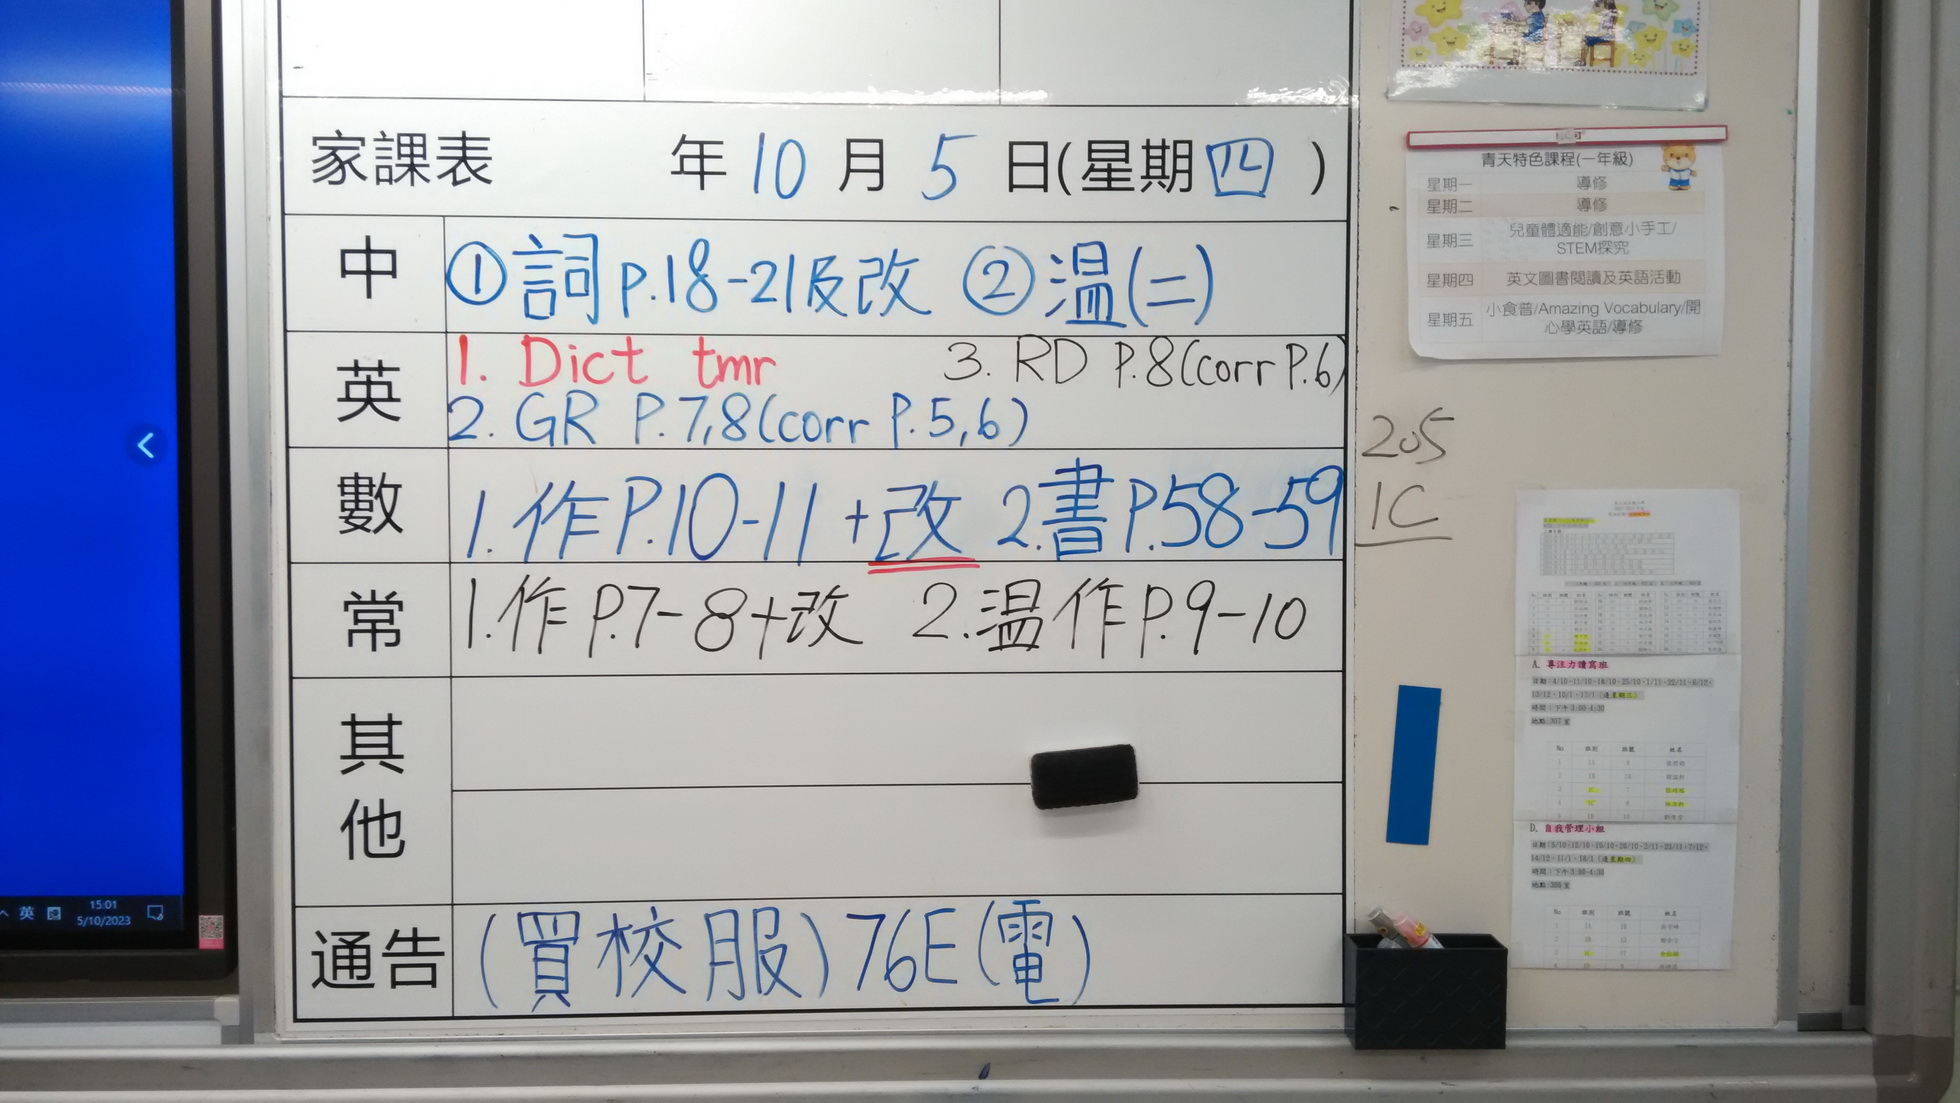 家課表 年 10 月 5 日(星期四)
中 ①詞 p.18-21及改 ②溫(二)
英 1. Dict tmr 3. RD P.8(corr P.6)
2. GR P.7,8(corr P.5,6)
數 1.作P.10-11+改 2.書P.58-59
常 1.作P.7-8+改 2.溫作P.9-10
其他
通告 (買校服)76E(電)
205
1C
青天特色課程(一年級)
星期一 導修
星期二 導修
星期三 兒童體適能/創意小手工/
STEM探究
星期四 英文圖書閱讀及英語活動
星期五 小食普/Amazing Vocabulary/開
心學英語/導修
A. 專注力讀寫班
時間：下午3:00-4:30
地點:307室
No 班別 班號 姓名
D. 自我管理小組
時間：下午3:00-4:30
地點:306室
No 班別 班號 姓名
英
15:01
5/10/2023